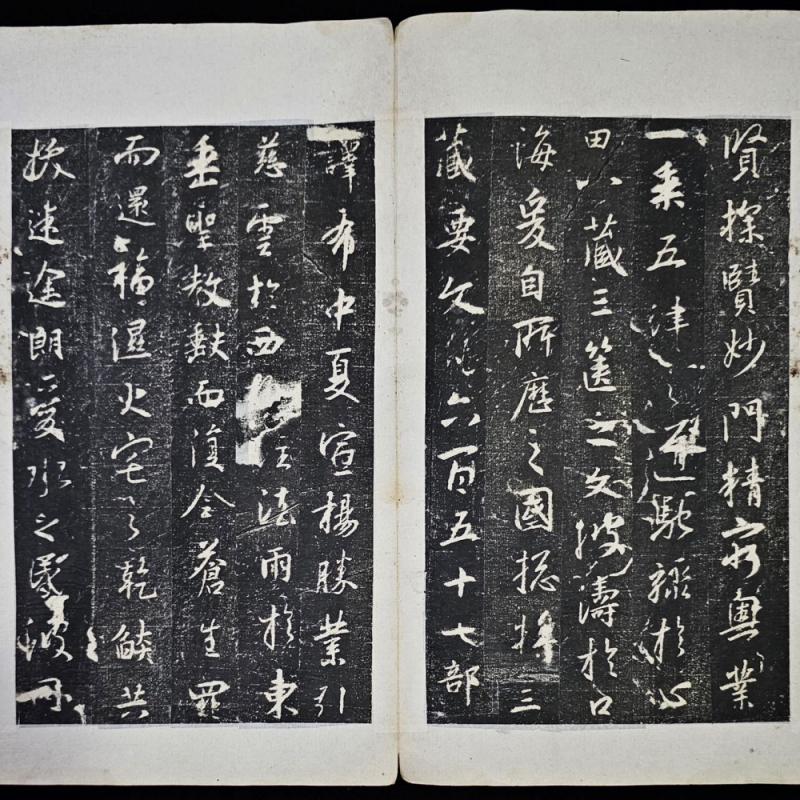 賢探賾妙門精窮奧業
一乘五律之道馳驟於心
田八藏三篋之文波濤於口
海爰自所歷之國揔將三
藏要文凡六百五十七部
譯布中夏宣揚勝業引
慈雲於西注法雨於東
垂聖教缺而復全蒼生罪
而還福濕火宅之乾燄共
拔迷途朗愛水之昏波同